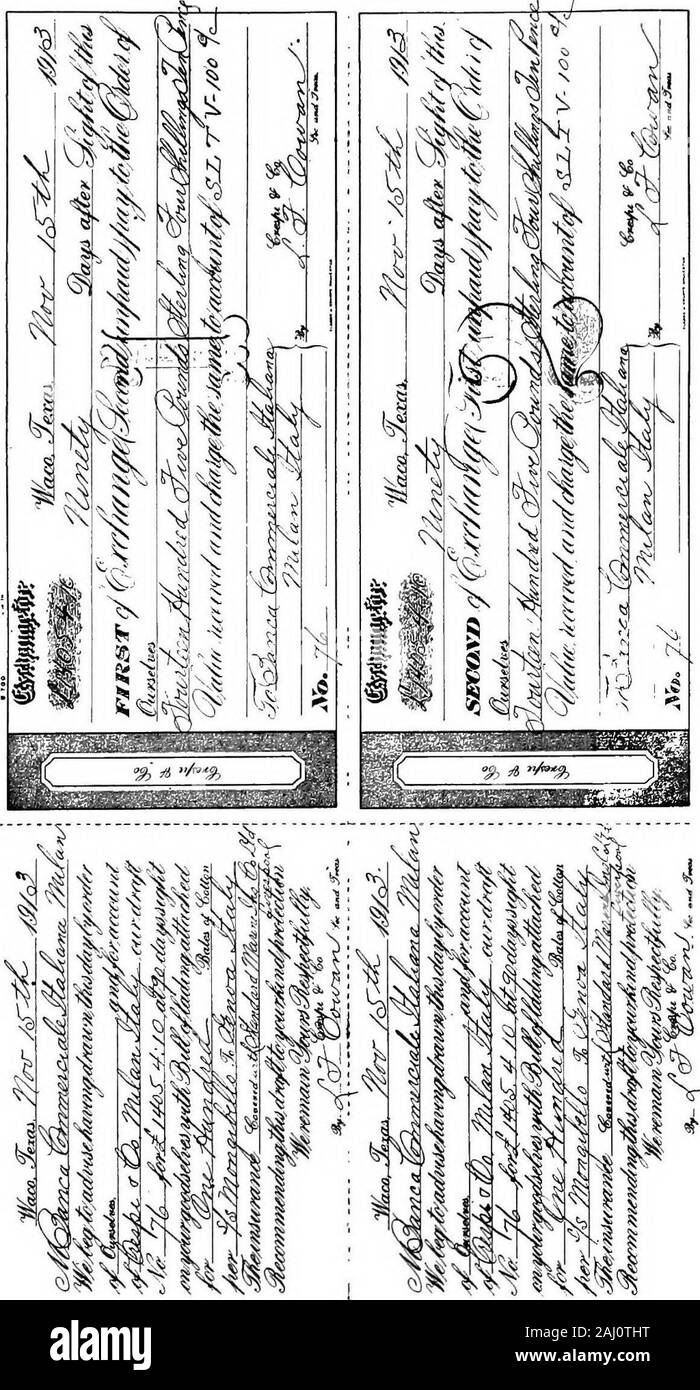 Waco, Texas, Nov 15th 1913
Exchange for
£1405-4-10
Ninety Days after Sight of this
FIRST of Exchange (Second unpaid) pay to the Order of
Ourselves
Fourteen Hundred Five Pounds Sterling Four Shillings Ten Pence
Value received and charge the same to account of
To Banca Commerciale Italiana
Milan Italy
No. 76
Crespi & Co
By L F Cowan
Sec and Treas
Crespi & Co
Waco, Texas, Nov 15th 1913
Exchange for
£1405-4-10
Ninety Days after Sight of this
SECOND of Exchange (First unpaid) pay to the Order of
Ourselves
Fourteen Hundred Five Pounds Sterling Four Shillings Ten Pence
Value received and charge the same to account of
To Banca Commerciale Italiana
Milan Italy
No. 76
Crespi & Co
By L F Cowan
Sec and Treas
Crespi & Co
Waco, Texas, Nov 15th 1913
M Banca Commerciale Italiana Milan
We beg to advise having drawn this day by order
of Ourselves and for account
of Crespi & Co Milan Italy our draft
No. 76 for £1405.4.10 at 90 days sight
on your goodselves with Bill of lading attached
for One Hundred Bales of Cotton
per S/S Mongibello To Genoa Italy
The insurance Covered with Standard Marine Ins Co Ltd
Liverpool
Recommending this draft to your kind protection
We remain Yours Respectfully.
Crespi & Co.
By L F Cowan Sec and Treas
Waco, Texas, Nov 15th 1913.
M Banca Commerciale Italiana Milan
We beg to advise having drawn this day by order
of Ourselves and for account
of Crespi & Co Milan Italy our draft
No. 76 for £1405.4.10 at 90 days sight
on your goodselves with Bill of lading attached
for One Hundred Bales of Cotton
per S/S Mongibello To Genoa Italy
The insurance Covered with Standard Marine
Liverpool
Recommending this draft to your kind protection
We remain Yours Respectfully.
Crespi & Co.
By L F Cowan Sec and Treas
alamy
Image ID: 2AJ0THT
www.alamy.com